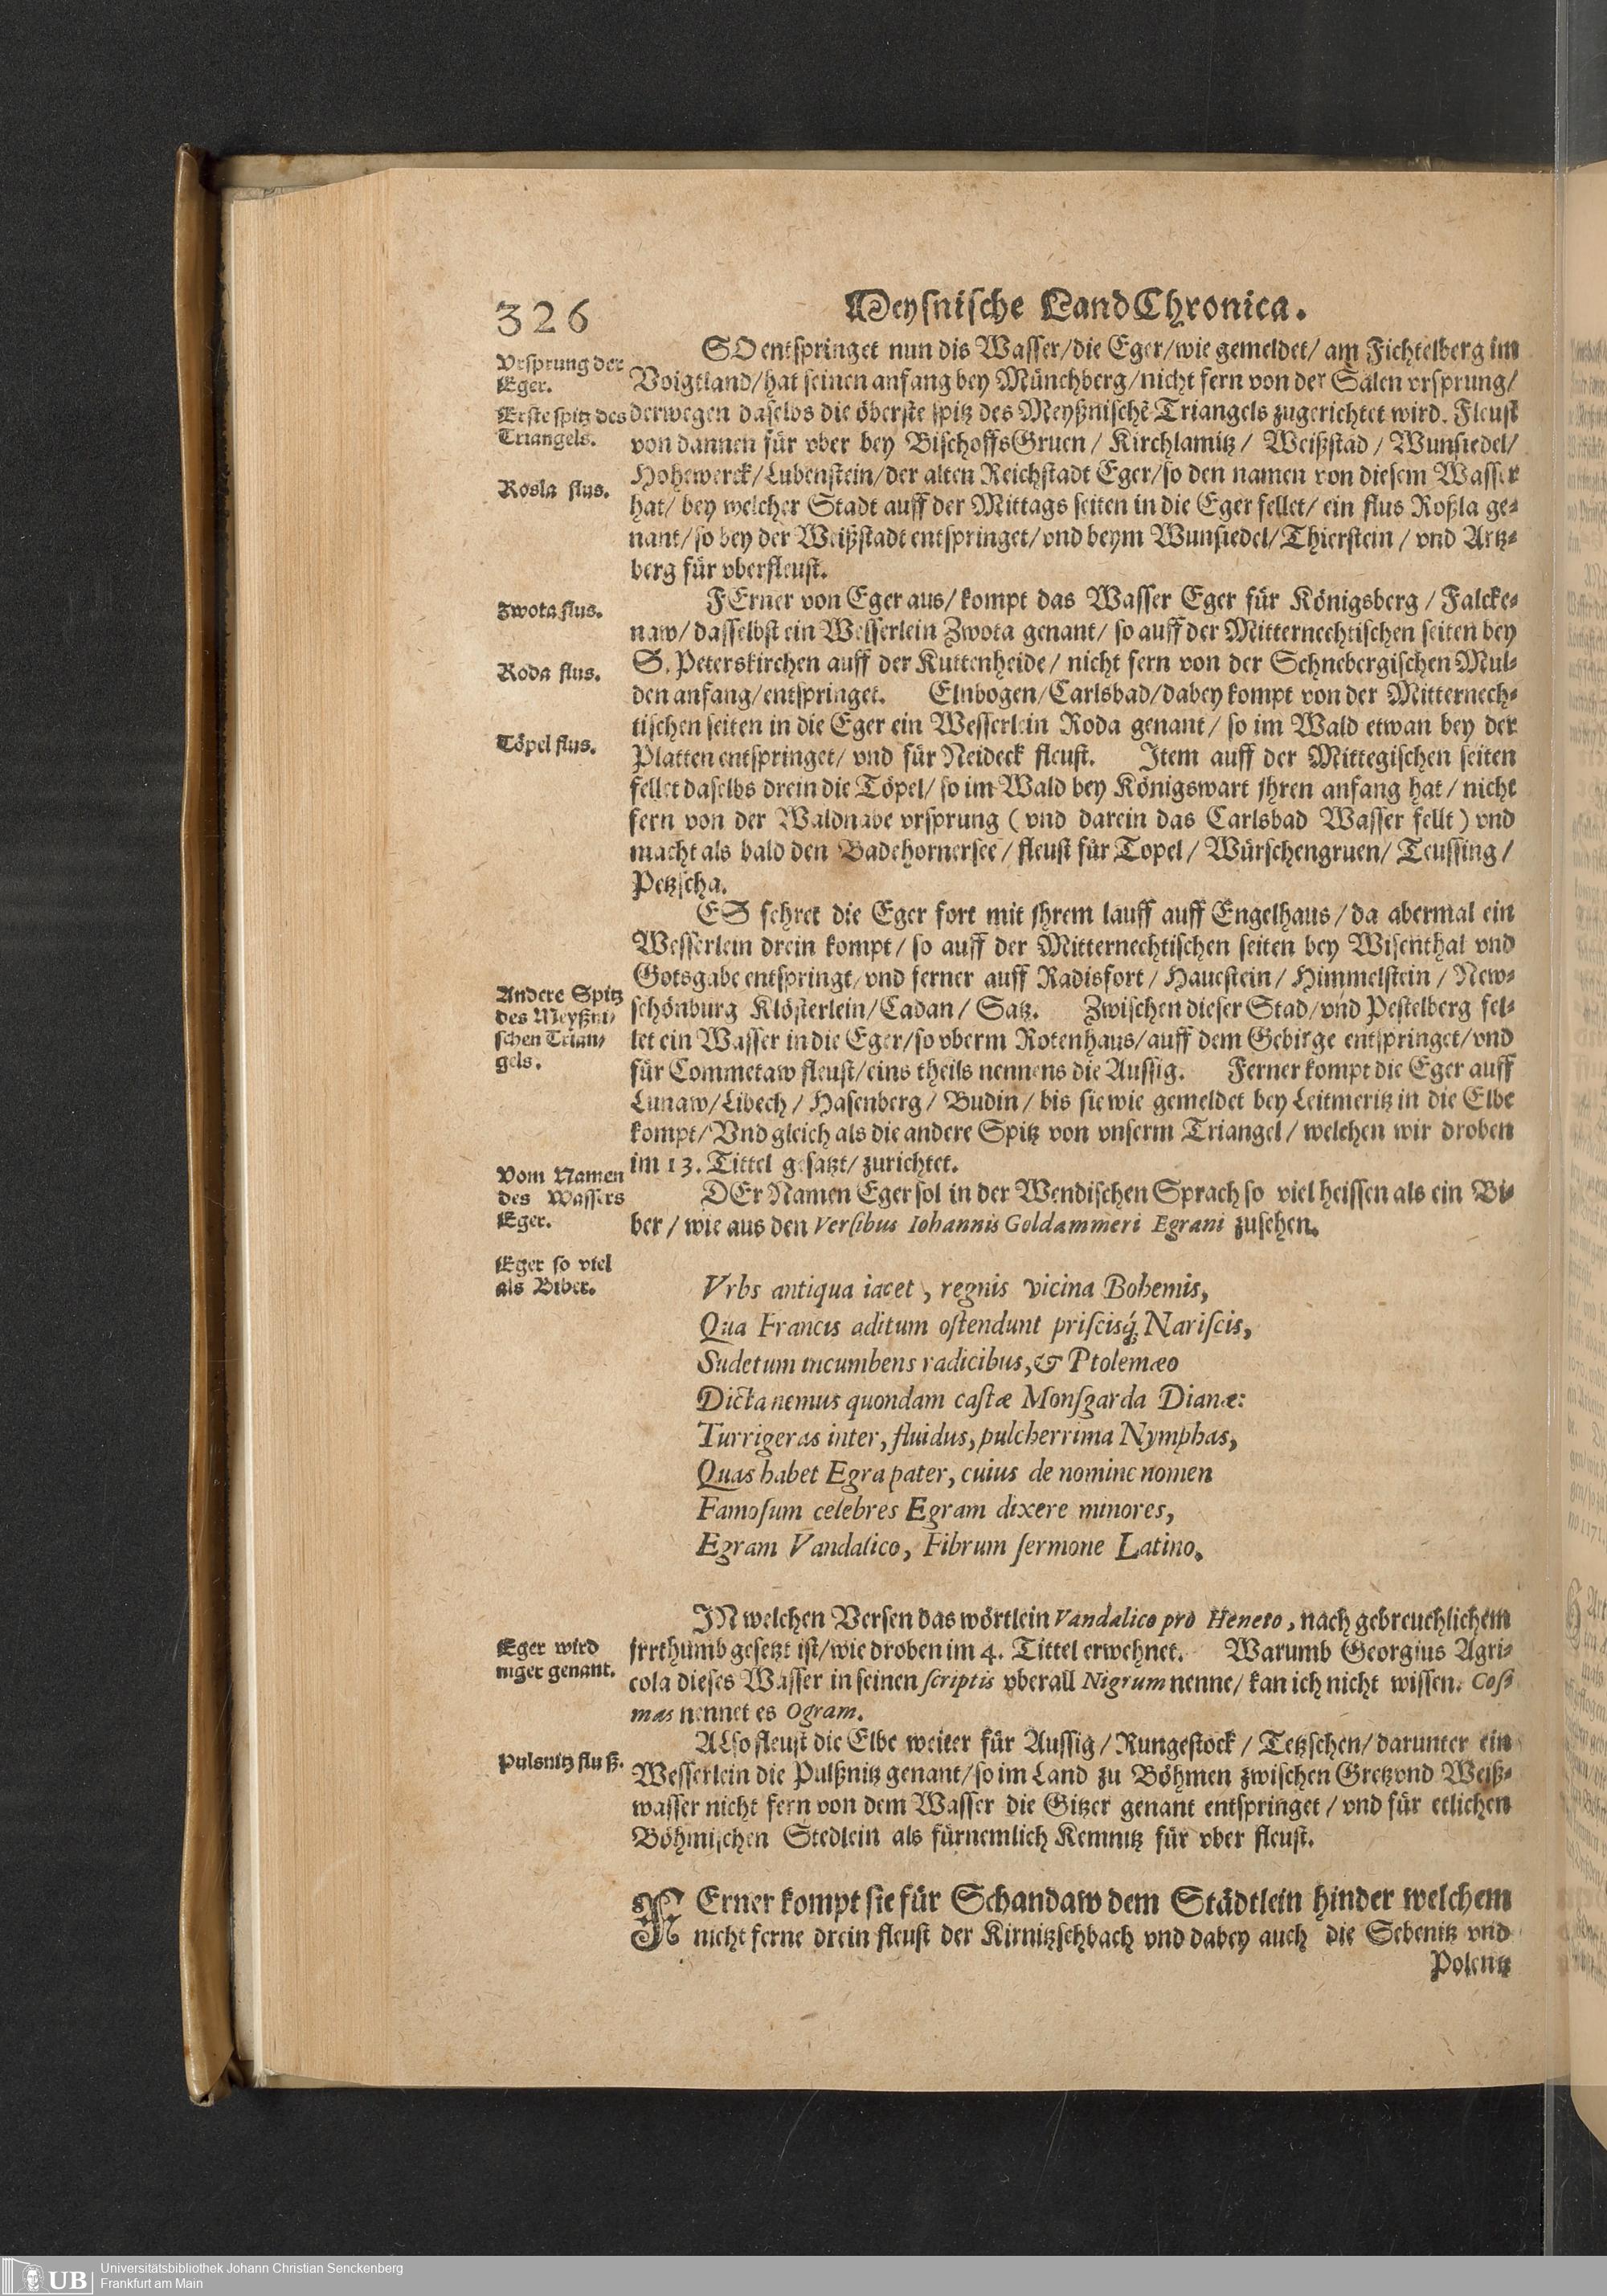 326
Meysnische LandChronica.
Vrsprung der
Eger.
Erste spitz des
Triangels.
Rosla flus.
Zwota flus.
Roda flus.
Töpel flus.
Andere Spitz
des Meyßni-
schen Trian-
gels.
Vom Namen
des Wassers
Eger.
Eger so viel
als Biber.
Eger wird
niger genant.
Pulsnitz fluß.
SO entspringet nun dis Wasser/die Eger/wie gemeldet/ am Fichtelberg im
Voigtland/hat seinen anfang bey Münchberg/nicht fern von der Salen vrsprung/
derwegen daselbs die öberste spitz des Meyßnischē Triangels zugerichtet wird. Fleust
von dannen für vber bey BischoffsGruen/ Kirchlamitz/ Weißstad/ Wunsiedel/
Hohewerck/Lubenstein/der alten Reichstadt Eger/so den namen von diesem Wasser
hat/ bey welcher Stadt auff der Mittags seiten in die Eger fellet/ ein flus Roßla ge-
nant/ so bey der Weißstadt entspringet/vnd beym Wunsiedel/Thierstein/ vnd Artz-
berg für vberfleust.
FErner von Eger aus/ kompt das Wasser Eger für Königsberg/ Falcke-
naw/ dasselbst ein Wesserlein Zwota genant/ so auff der Mitternechtischen seiten bey
S. Peterskirchen auff der Kuttenheide/ nicht fern von der Schnebergischen Mul-
den anfang/entspringet. Elnbogen/Carlsbad/dabey kompt von der Mitternech-
tischen seiten in die Eger ein Wesserlein Roda genant/ so im Wald etwan bey der
Platten entspringet/ vnd für Neideck fleust. Item auff der Mittegischen seiten
fellet daselbs drein die Töpel/ so im Wald bey Königswart jhren anfang hat/ nicht
fern von der Waldnabe vrsprung (vnd darein das Carlsbad Wasser fellt) vnd
macht als bald den Badehornersee/ fleust für Topel/ Würschengruen/ Teussing/
Petzscha.
ES fehret die Eger fort mit jhrem lauff auff Engelhaus/da abermal ein
Wesserlein drein kompt/ so auff der Mitternechtischen seiten bey Wisenthal vnd
Gotsgabe entspringt/vnd ferner auff Radisfort/ Hauestein/ Himmelstein/ New-
schönburg Klösterlein/Cadan/ Satz. Zwischen dieser Stad/vnd Pestelberg fel-
let ein Wasser in die Eger/so vberm Rotenhaus/auff dem Gebirge entspringet/vnd
für Commetaw fleust/eins theils nennens die Aussig. Ferner kompt die Eger auff
Lunaw/Libech/ Hasenberg/ Budin/ bis sie wie gemeldet bey Leitmeritz in die Elbe
kompt/Vnd gleich als die andere Spitz von vnserm Triangel/ welchen wir droben
im 13. Tittel gesatzt/ zurichtet.
DEr Namen Eger sol in der Wendischen Sprach so viel heissen als ein Bi-
ber/ wie aus den Versibus Iohannis Goldammeri Egrani zusehen.
Vrbs antiqua iacet, regnis vicina Bohemis,
Qua Francis aditum ostendunt priscisq́; Nariscis,
Sudetum incumbens radicibus, & Ptolemæo
Dicta nemus quondam castæ Monsgarda Dianæ:
Turrigeras inter, fluidus, pulcherrima Nymphas,
Quas habet Egra pater, cuius de nomine nomen
Famosum celebres Egram dixere minores,
Egram Vandalico, Fibrum sermone Latino.
IN welchen Versen das wörtlein Vandalico pro Heneto, nach gebreuchlichem
jrrthumb gesetzt ist/wie droben im 4. Tittel erwehnet. Warumb Georgius Agri-
cola dieses Wasser in seinen scriptis vberall Nigrum nenne/ kan ich nicht wissen. Cos-
mas nennet es Ogram.
ALso fleust die Elbe weiter für Aussig/Rungestock/ Tetzschen/darunter ein
Wesserlein die Pulßnitz genant/so im Land zu Böhmen zwischen Gretz vnd Weiß-
wasser nicht fern von dem Wasser die Gitzer genant entspringet/ vnd für etlichen
Böhmischen Stedlein als fürnemlich Kemnitz für vber fleust.
FErner kompt sie für Schandaw dem Städtlein hinder welchem
nicht ferne drein fleust der Kirnitzschbach vnd dabey auch die Sebenitz vnd
Polentz
UB
Universitätsbibliothek Johann Christian Senckenberg
Frankfurt am Main